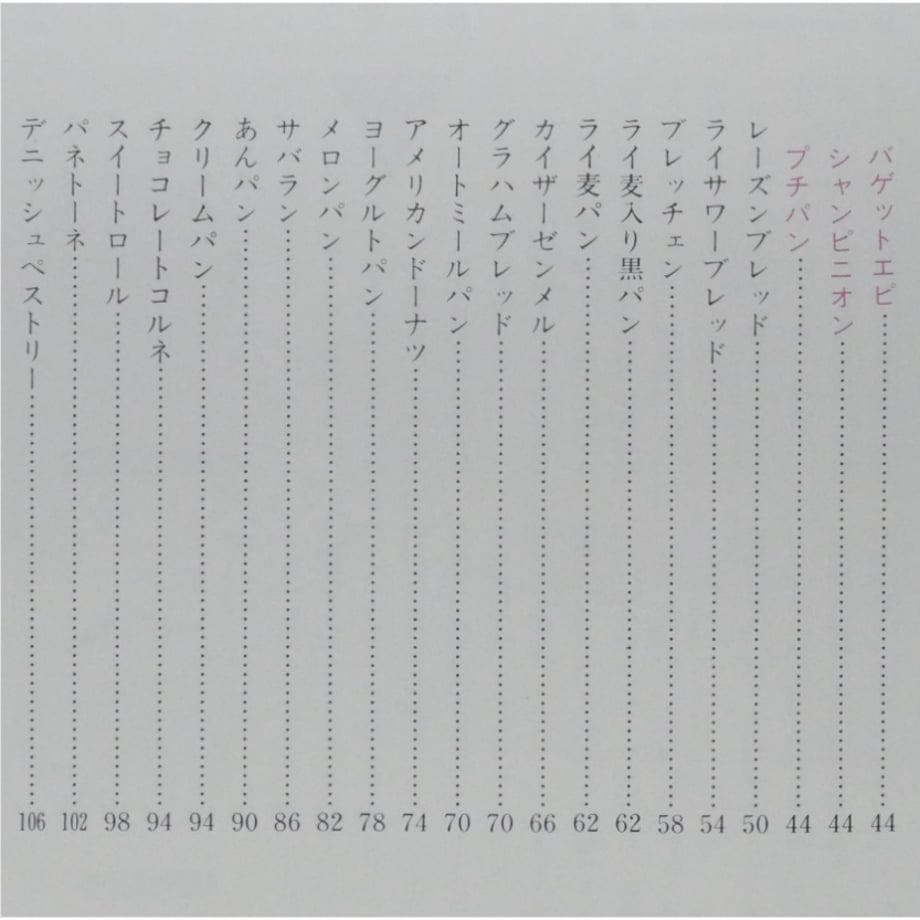 バゲットエピ……44
シャンピニオン……44
プチパン……44
レーズンブレッド……50
ライサワーブレッド……54
ブレッチェン……58
ライ麦入り黒パン……62
ライ麦パン……62
カイザーゼンメル……66
グラハムブレッド……70
オートミールパン……70
アメリカンドーナツ……74
ヨーグルトパン……78
メロンパン……82
サバラン……86
あんパン……90
クリームパン……94
チョコレートコルネ……94
スイートロール……98
パネトーネ……102
デニッシュペストリー……106